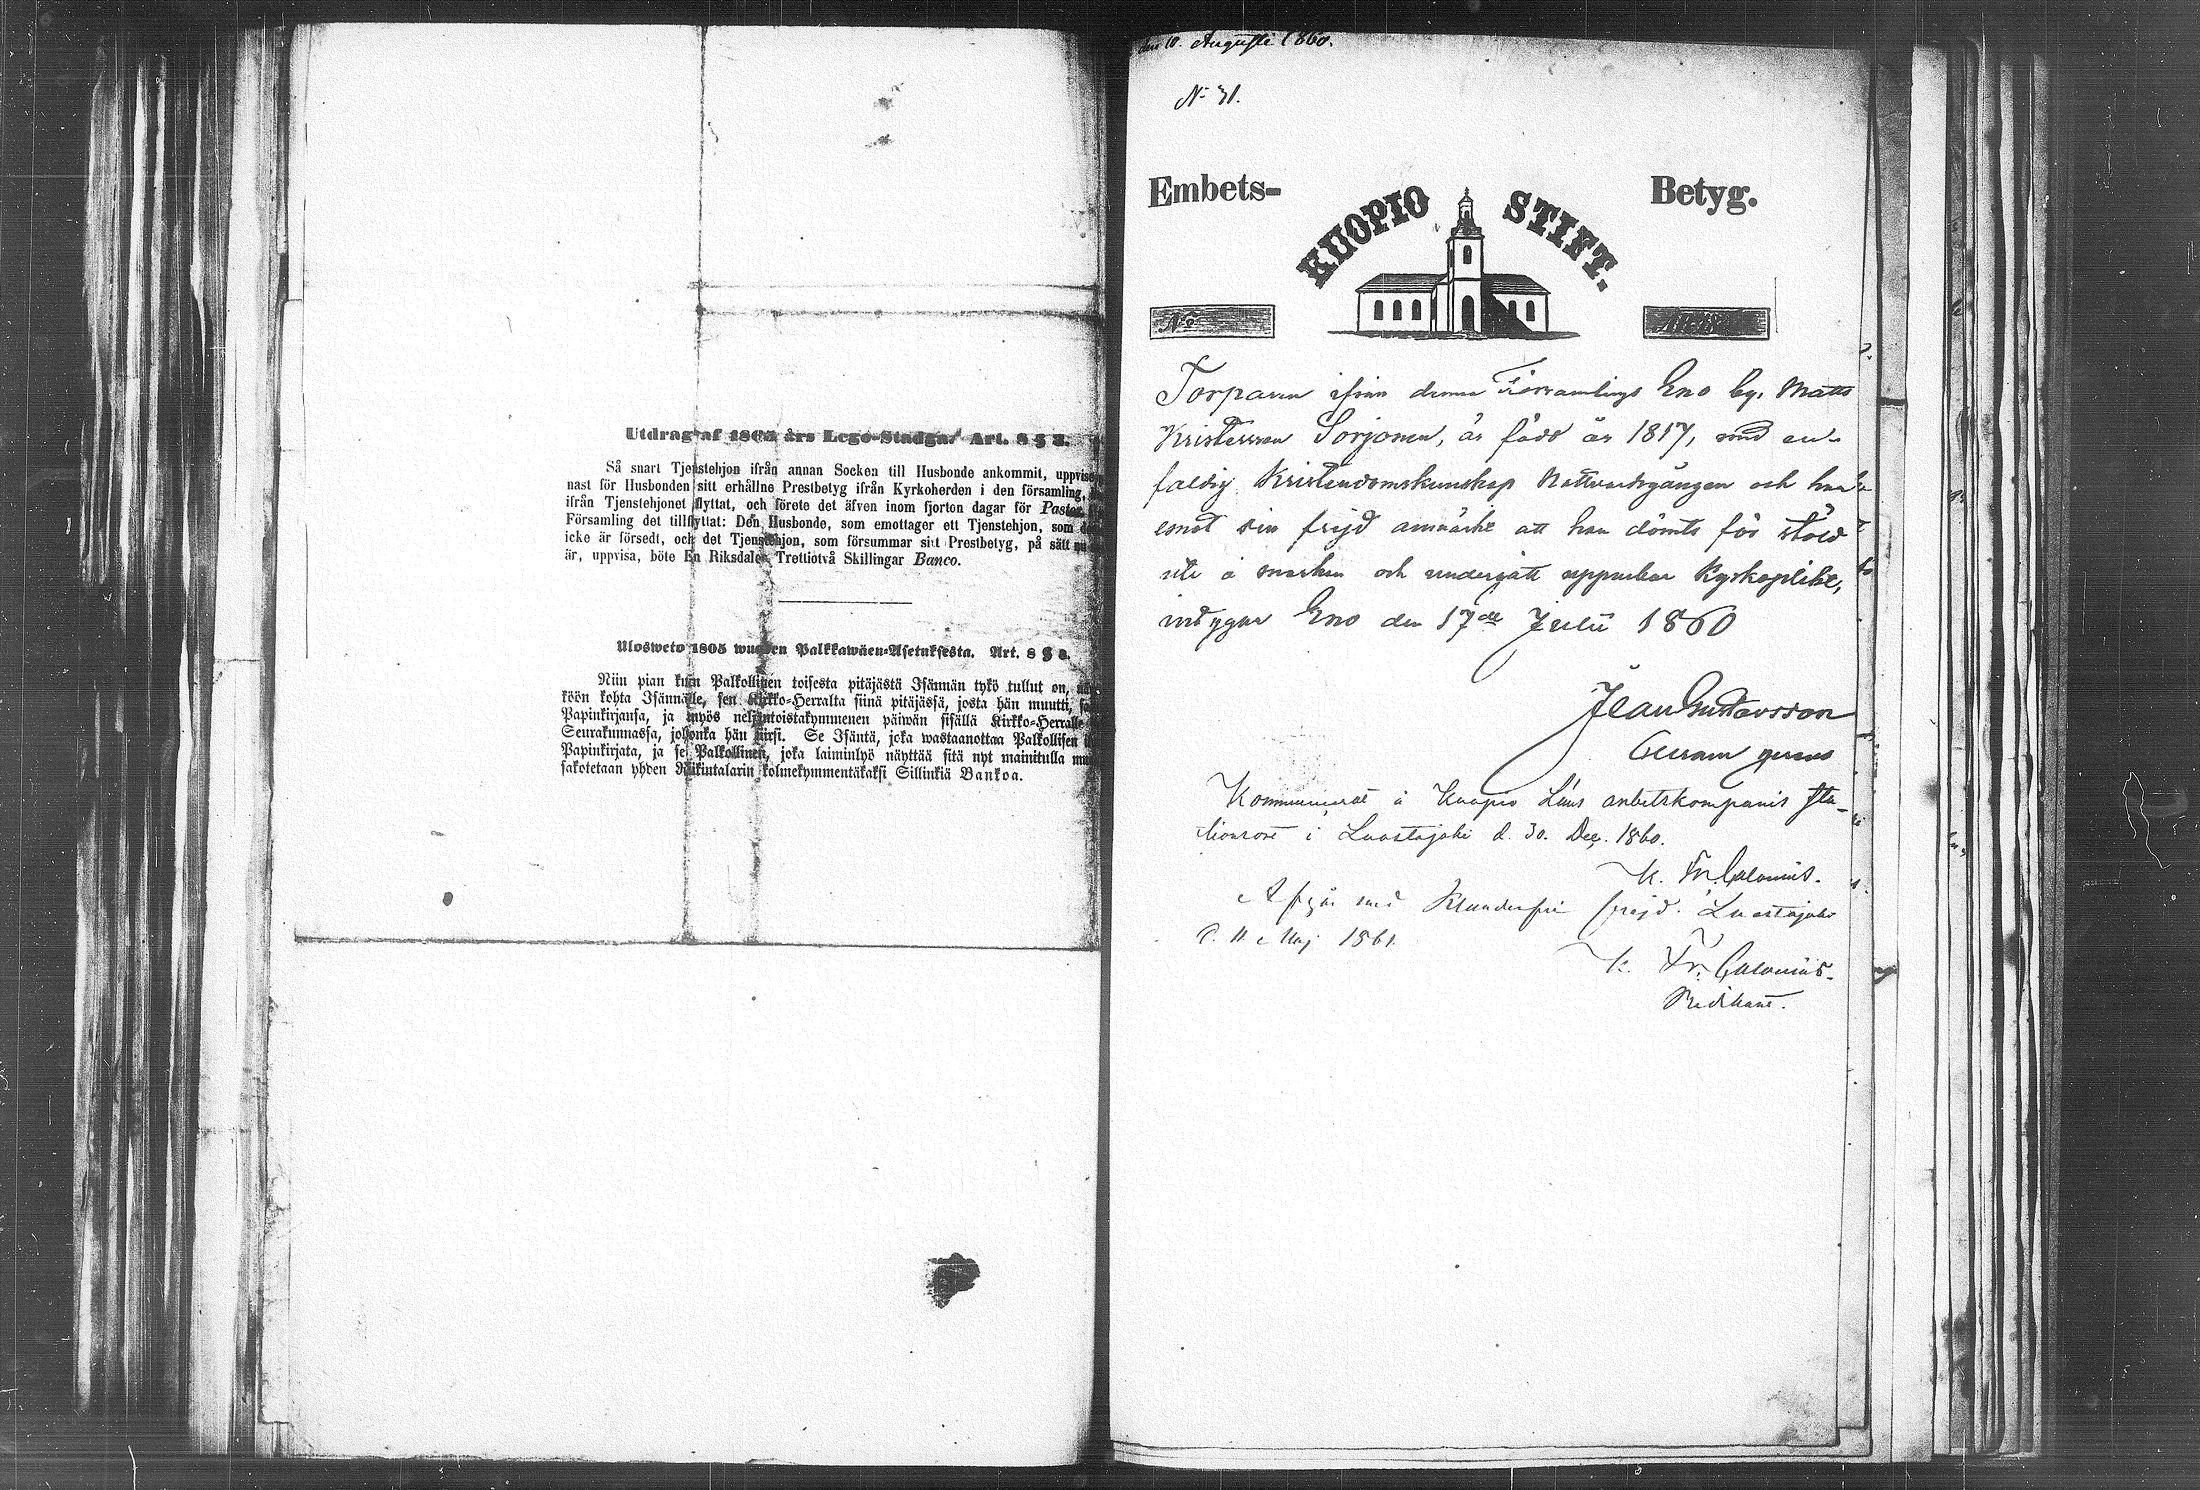 Utdrag af 1805 års Lego-Stadgar Art. 8 § 3.
Så snart Tjenstehjon ifrån annan Socken till Husbonde ankommit, uppvise
nast för Husbonden sitt erhållne Prestbetyg ifrån Kyrkoherden i den församling,
ifrån Tjenstehjonet flyttat, och förete det äfven inom fjorton dagar för Pastor
Församling det tillflyttat: Den Husbonde, som emottager ett Tjenstehjon, som
icke är försedt, och det Tjenstehjon, som försummar sitt Prestbetyg, på sätt
är, uppvisa, böte En Riksdaler Trettiotvå Skillingar Banco.
Ulosweto 1805 wuoden Palkkawäen-Asetuksesta. Art. 8 §
Niin pian kuin Palkollinen toisesta pitäjästä Isännän tykö tullut on,
köön kohta Isännälle, sen Kirkko-Herralta siinä pitäjässä, josta hän muutti,
Papinkirjansa, ja myös neljäntoistakymmenen päiwän sisällä Kirkko-Herralle
Seurakunnassa, johonka hän siirsi. Se Isäntä, joka wastaanottaa Palkollisen
Papinkirjata, ja se Palkollinen, joka laiminlyö näyttää sitä nyt mainitulla
sakotetaan yhden Riikintalarin kolmekymmentäkaksi Sillinkiä Bankoa.
den 10. Augusti 1860.
No 31.
Embets- KUOPIO STIFT. Betyg.
No
Torparen ifrån denna Församlings Eno by, Matts
Kristersson Sorjonen, är född år 1817, med en-
faldig Kristendomskunskap Nattvardsgången och har
emot sin frejd anmärkt att han dömts för stöld
ute å marken och undergått uppenbar Kyrkoplikt,
intygar Eno den 17de Julii 1860
Jean Gustavsson
Curam gerens
Kommunicerat å Kuopio Läns arbetskompanis sta-
tionsort i Luostajoki d. 30. Dec. 1860.
K. Fr. Calonius.
Afgår med klanderfri frejd. Luostajoki
d. 11 Maj 1861.
K. Fr. Calonius.
Predikant.